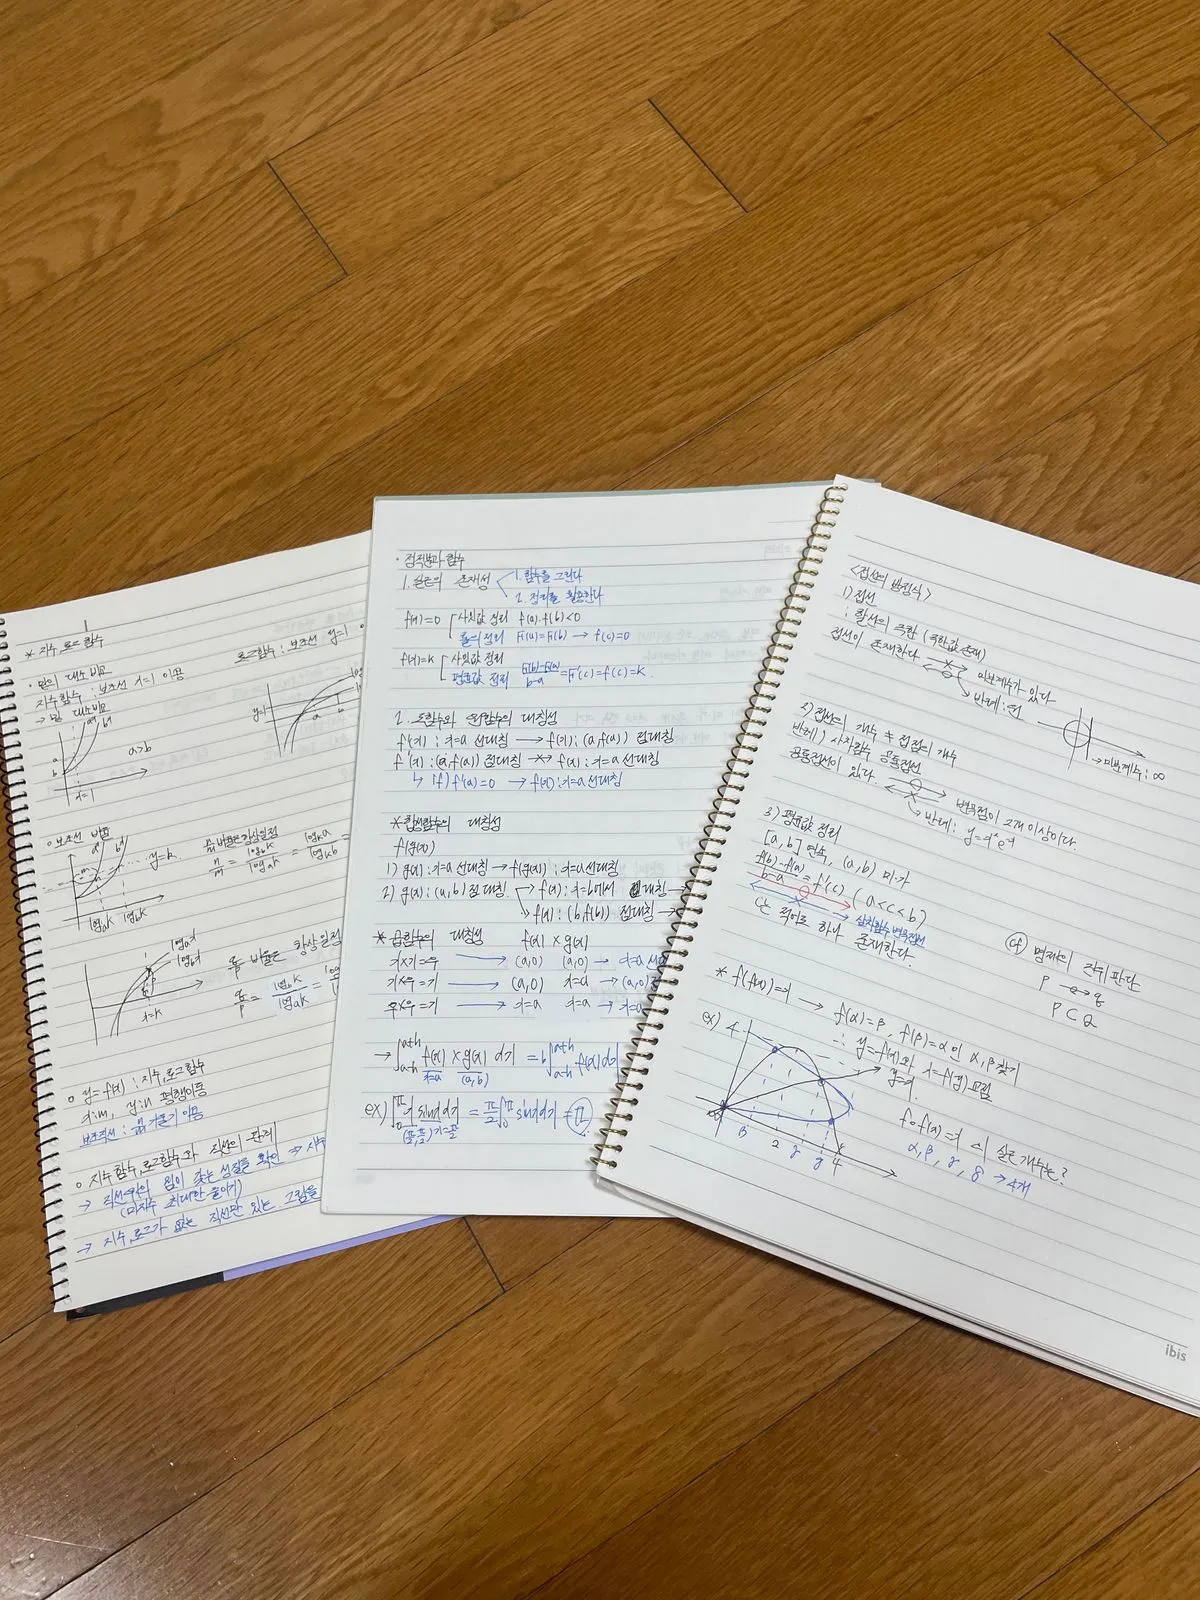 * 지수, 로그 함수
로그함수 : 보조선 y=1
· 밑의 대소비교
지수함수 : 보조선 x=1 이용
→ 밑 대소비교
aˣ bˣ
a>b
a
b
x=1
y=1
a
b
○ 보조선 비율
aˣ bˣ
y=k
비율은 항상일정
n/m = log_b k / log_a k = log_k a / log_k b
log_a k log_b k
log_a x
log_b x
비율은 항상일정
q/p = log_b k / log_a k =
x=k
○ y=f(x) : 지수,로그함수
x:m, y:n 평행이동
보조직선 : 기울기 이용
○ 지수함수,로그함수와 직선의 관계
→ 직선위의 점이 갖는 성질을 확인 ⇒ 지수
(미지수 최대한 줄이기)
→ 지수,로그가 없는 직선만 있는 그림을
· 정적분과 함수
1. 실근의 존재성
1. 함수를 그린다
2. 정리를 활용한다
f(x)=0 사잇값 정리 f(a).f(b)<0
롤의 정리 F(a)=F(b) → f(c)=0
f(x)=k 사잇값 정리
평균값 정리 F(b)-F(a)/b-a =F'(c)=f(c)=k.
2. 도함수와 원함수의 대칭성
f'(x) : x=a 선대칭 → f(x) : (a,f(a)) 점대칭
f'(x) : (a,f'(a)) 점대칭 ↛ f(x) : x=a 선대칭
↳ if) f'(a)=0 → f(x) : x=a 선대칭
* 합성함수의 대칭성
f(g(x))
1) g(x) : x=a 선대칭 → f(g(x)) : x=a 선대칭
2) g(x) : (a,b) 점대칭 → f(x) : x=b에서 점대칭 →
→ f(x) : (b,f(b)) 점대칭 →
* 곱함수의 대칭성 f(x) × g(x)
기×기=우 → (a,0) (a,0) → x=a
기×우=기 → (a,0) x=a → (a,0)
우×우=기 → x=a x=a → x=a
→ ∫_{a-h}^{a+h} f(x) × g(x) dx = b∫_{a-h}^{a+h} f(x)dx
x=a (a,b)
ex) ∫_0^π x sinx dx = π/2 ∫_0^π sinx dx = π
(π/2, π/2) x=π/2
<접선의 방정식>
1) 접선
: 할선의 극한 (극한값 존재)
접선이 존재한다 미분계수가 있다.
반례 : 원
→ 미분계수 : ∞
2) 접선의 개수 ≠ 접점의 개수
반례) 사차함수 공통접선
공통접선이 있다. 변곡점이 2개 이상이다.
반례 : y=x²eˣ
3) 평균값 정리
[a, b] 연속, (a, b) 미가
f(b)-f(a)/b-a = f'(c) (a<c<b)
→ 삼차함수 변곡접선
C는 적어도 하나 존재한다.
cf) 명제의 진위 판단
P → q
P ⊂ Q
* f(f(x))=x → f(α)=β, f(β)=α인 α,β 찾기
∴ y=f(x)와 x=f(y) 교점
ex) 4
y=x
β 2 γ 4
f∘f(x)=x 의 실근 개수는?
α, β, γ, δ → 4개
ibis